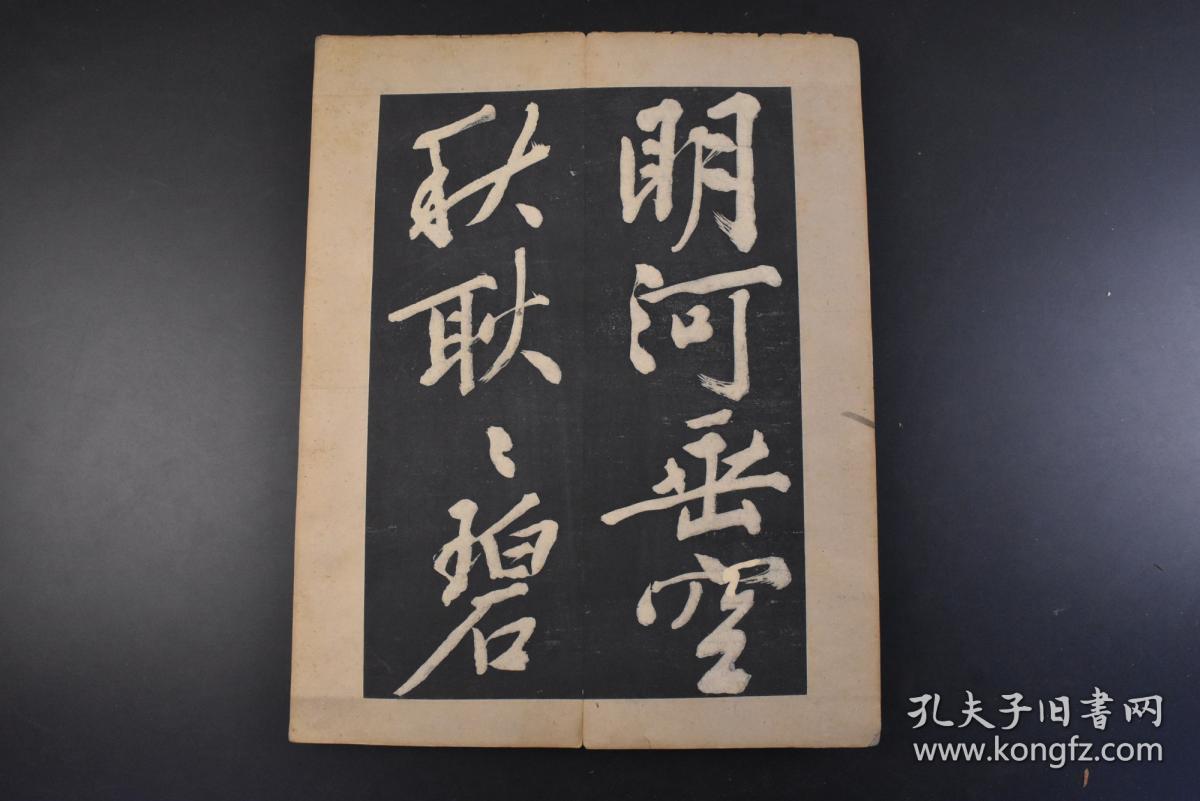 明河垂空
秋耿〻碧
孔夫子旧書网
www.kongfz.com